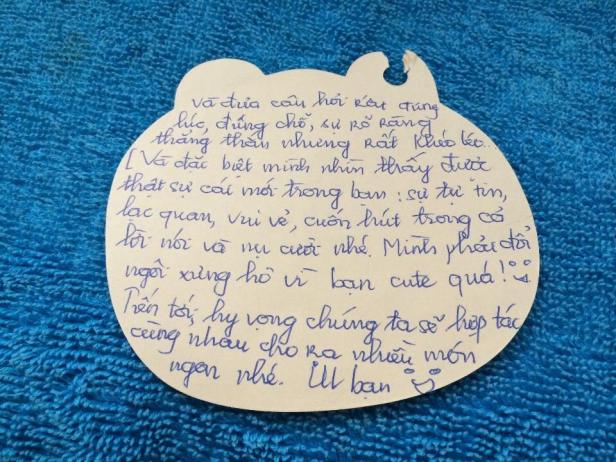 và đưa câu hỏi rất đúng
lúc, đúng chỗ, sự rõ ràng
thẳng thắn nhưng rất khéo léc...
[Và đặc biệt mình nhìn thấy được
thật sự cái mới trong bạn: sự tự tin,
lạc quan, vui vẻ, cuốn hút trong cả
lời nói và nụ cười nhé. Mình phải đổi
ngôi xưng hô vì bạn cute quá!
Tiến tới, hy vọng chúng ta sẽ hợp tác
cùng nhau cho ra nhiều món
ngon nhé. Ul bạn